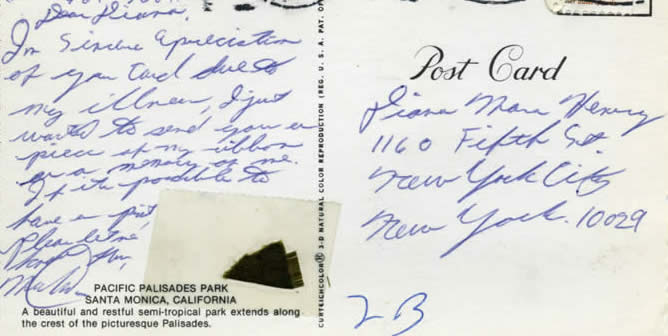 Dear Diana,
In Sincere Apreciation
of your Card due to
my illness, I just
wanted to send you a
piece of my ribbon
as a memory of me.
If its possible to
have a pict,
Please let me
know
PACIFIC PALISADES PARK
SANTA MONICA, CALIFORNIA
A beautiful and restful semi-tropical park extends along
the crest of the picturesque Palisades.
CURTEICHCOLOR® 3-D NATURAL COLOR REPRODUCTION (REG. U. S. A. PAT. OF
Post Card
Diana Mara Henry
1160 Fifth St.
New York City
New York. 10029
2B